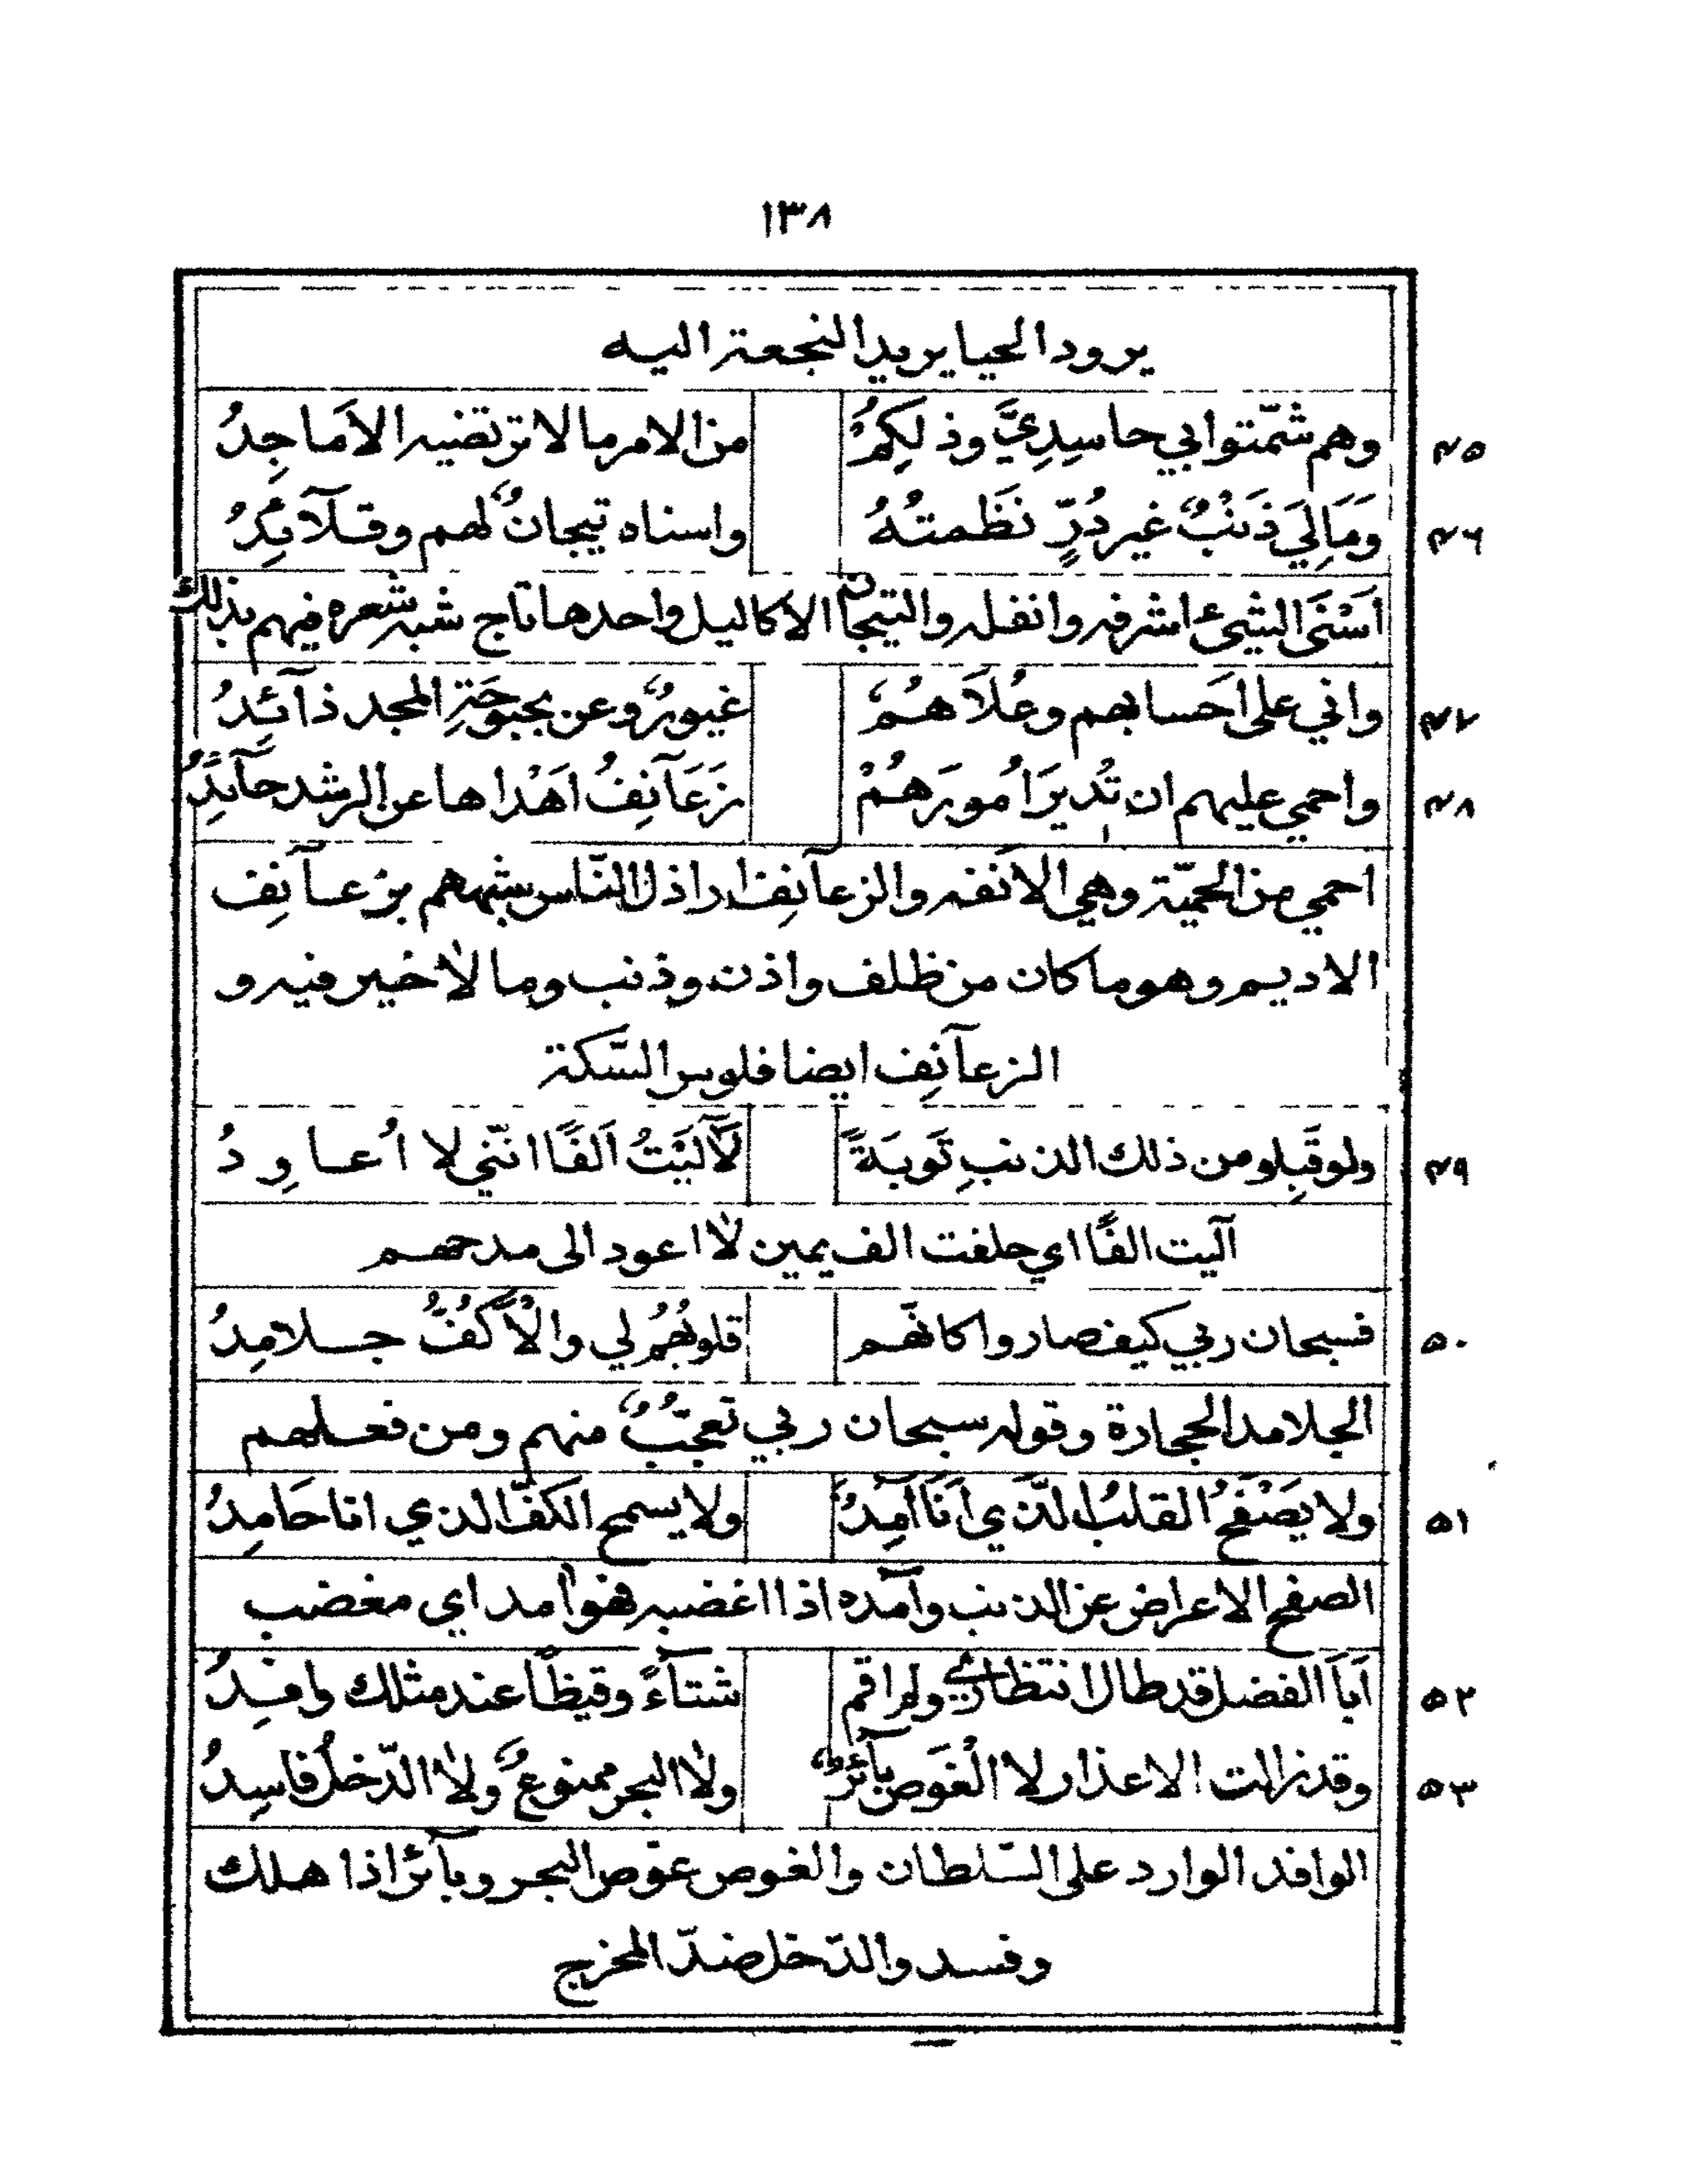 ١٣٨
يرود الحيا يريد النجعة اليه
٤٥ وهم شمّتوا بي حاسِدِيَّ وذلكِمُ من الامر ما لا ترتضيه الاَماجِدُ
٤٦ وَمَالِيَ ذَنْبٌ غير دُرٍّ نَظَمتُهُ واسناه تيجانٌ لهم وقلآئِدُ
اَسْنَى الشيئ اشرفه وانفله والتيجان الاكاليل واحدها تاج شبه شعره فيهم بذلك
٤٧ واني على اَحَسابهم وعُلاَهُمُ غيورٌ وعن بحبوحَةِ المجد ذآئِدُ
٤٨ واحمي عليهم ان تُديرَ اُمورَهُمْ زَعَآنِفُ اَهْداها عن الرشد حآئِدُ
احمي من الحميّة وهي الاَنفه والزعآنِف اراذل النّاس شبههم بزعآنِف
الاديم وهو ما كان من ظلف واذن وذنب وما لا خير فيه و
الزعآنِف ايضا فلوس السّمكة
٤٩ ولو قَبِلو من ذلك الذنبِ تَوبَةً لَآلَيْتُ اَلفًا انّني لا اُعاوِدُ
آليت الفًا اي حلفت الف يمين لا اعود الى مدحهم
٥٠ فسبحان ربي كيف صاروا كانّهم قلوبُهُمُ لي والْاَكُفُّ جلامِدُ
الجلامد الحجارة وقوله سبحان ربي تعجّبٌ منهم ومن فعلهم
٥١ ولا يَصْفَحُ القلبُ الّذي اَنَا آمِدٌ ولا يسمح الكفّ الذي انا حَامِدُ
الصفح الاعراض عن الذنب وآمده اذا اغضبه فهو آمد اي مغضب
٥٢ اَبَا الفضل قد طال انتظاري ولم اقم شتآءً وقيظًا عند مثلك وافِدُ
٥٣ وقد زالت الاعذار لا الْغَوص بآئرٌ ولا البحر ممنوعٌ ولا الدّخلُ فاسِدُ
الوافد الوارد على السّلطان والغوص غوص البحر وبآئر اذا هلك
وفسد والدّخل ضدّ المخرج